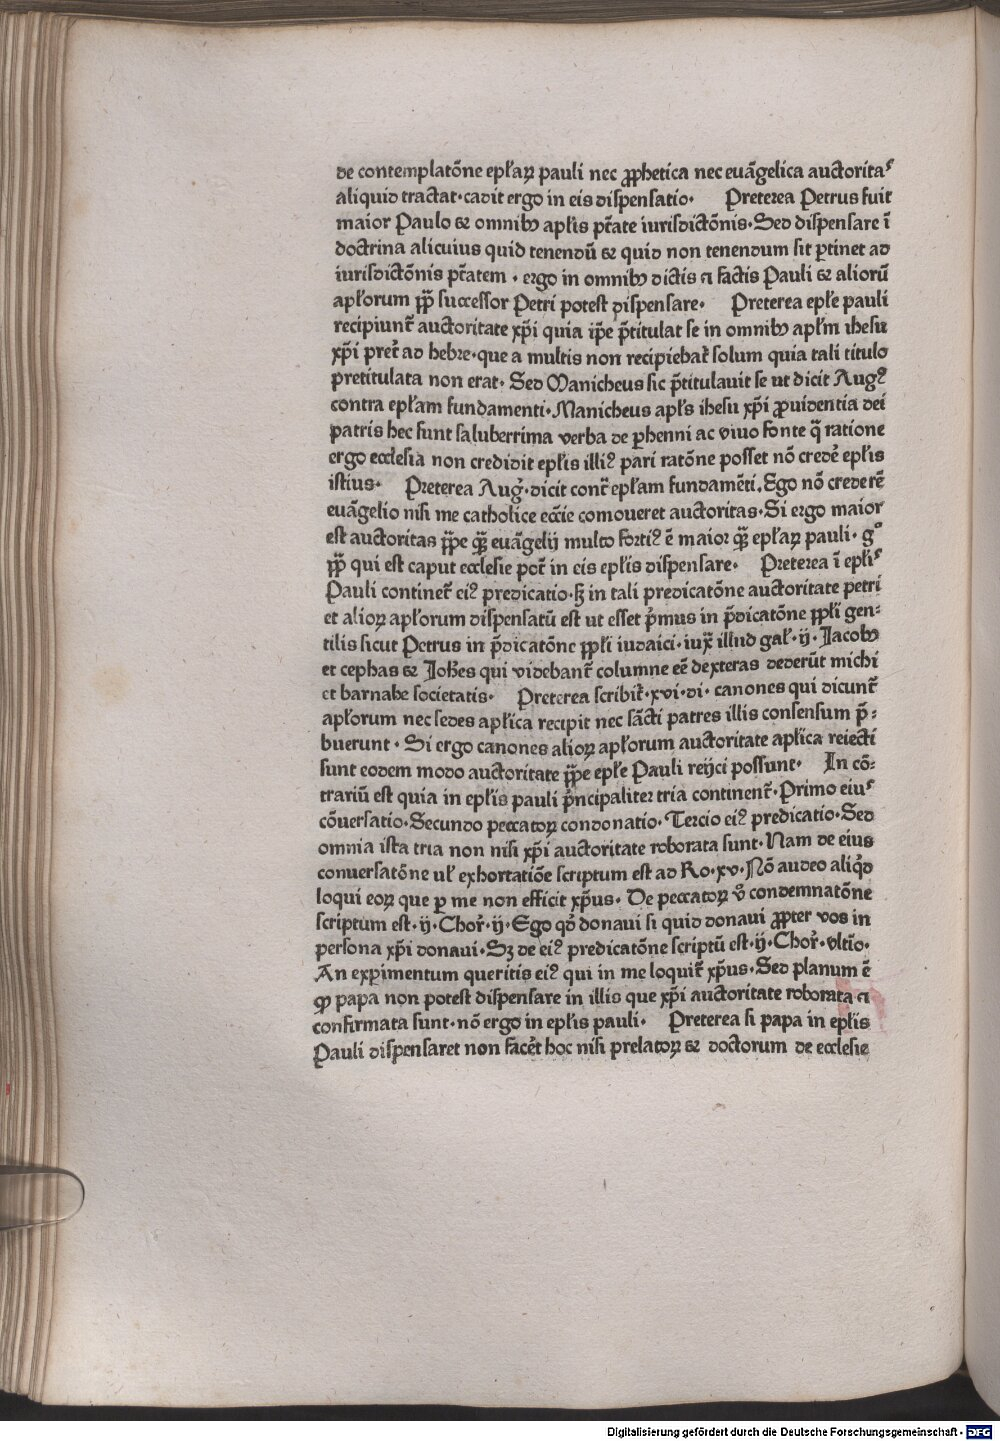 de contemplatōne epl̄aꝝ pauli nec ꝓphetica nec euāgelica auctoritaˢ
aliquid tractat·cadit ergo in eis dispensatio· Preterea Petrus fuit
maior Paulo & omnibꝰ apl̄is pt̄ate iurisdictōnis·Sed dispensare ī
doctrina alicuius quid tenendū & quid non tenendum sit ꝑtinet ad
iurisdictōnis pt̄atem · ergo in omnibꝰ dictis ⁊ factis Pauli & aliorū
apl̄orum pp̄ successor Petri potest dispensare· Preterea epl̄e pauli
recipiunt̄ auctoritate xp̄i quia ip̄e p̄titulat se in omnibꝰ apl̄m ihesu
xp̄i pret̉ ad hebre·que a multis non recipiebat̄ solum quia tali titulo
pretitulata non erat· Sed Manicheus sic p̄titulauit se ut dicit Augꝰ
contra epl̄am fundamenti·Manicheus apl̄s ihesu xp̄i ꝓuidentia dei
patris hec sunt saluberrima verba de ꝑhenni ac viuo fonte q̄ ratione
ergo ecclesia non credidit epl̄is illiꝰ pari ratōne posset nō cred̉e epl̄is
istius· Preterea Aug̉·dicit cont̄ epl̄am fundamēti.Ego nō crederē
euāgelio nisi me catholice ecc̄ie comoueret auctoritas·Si ergo maior
est auctoritas pp̄e qꝫ̄ euāgelij multo fortiꝰ ē maior qꝫ̄ epl̄aꝝ pauli· gᵒ
pp̄ qui est caput ecclesie pot̄ in eis epl̄is dispensare· Preterea ī epl̄iˢ
Pauli continet̄ eiꝰ predicatio·sꝫ in tali predicatōne auctoritate petri
et alioꝝ apl̄orum dispensatū est ut esset p̉mus in p̄dicatōne ppl̄i gen⸗
tilis sicut Petrus in p̄dicatōne ppl̄i iudaici·iux̄ illud gal̄·ij·Jacobꝰ
et cephas & Joh̄es qui videbant̄ columne eē dexteras dederūt michi
et barnabe societatis· Preterea scribit̄·xvi·di· canones qui dicunt̄
apl̄orum nec sedes apl̄ica recipit nec sācti patres illis consensum p̄⸗
buerunt · Si ergo canones alioꝝ apl̄orum auctoritate apl̄ica reiecti
sunt eodem modo auctoritate pp̄e epl̄e Pauli reijci possunt· In cō⸗
trariū est quia in epl̄is pauli p̉ncipaliter tria continent̄·Primo eiuˢ
cōuersatio·Secundo peccatoꝝ condonatio·Tercio eiꝰ predicatio·Sed
omnia ista tria non nisi xp̄i auctoritate roborata sunt·Nam de eius
conuersatōne ul̄ exhortatiōe scriptum est ad Ro·xv·Nō audeo aliq̉d
loqui eoꝝ que ꝑ me non efficit xp̄us· De peccatoꝝ v̉o condemnatōne
scriptum est·ij·Chor̉·ij·Ego qd̉ donaui si quid donaui ꝓpter vos in
persona xp̄i donaui·Sꝫ de eiꝰ predicatōne scriptū est·ij·Chor̉·vltīo·
An experimentum queritis eiꝰ qui in me loquit̄ xp̄us·Sed planum ē
ꝙ papa non potest dispensare in illis que xp̄i auctoritate roborata ⁊
confirmata sunt·nō ergo in epl̄is pauli· Preterea si papa in epl̄is
Pauli dispensaret non facēt hoc nisi prelatoꝝ & doctorum de ecclesie
Digitalisierung gefördert durch die Deutsche Forschungsgemeinschaft - DFG